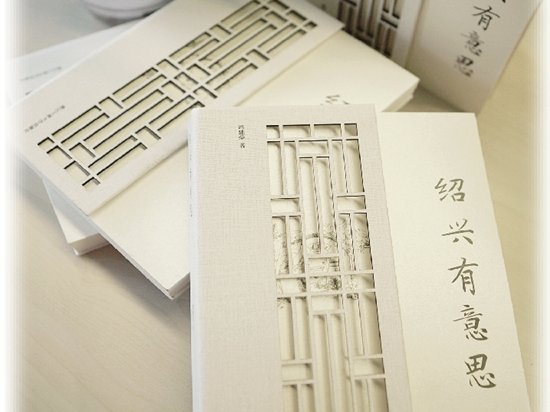 绍兴有意思
著
兴有意思